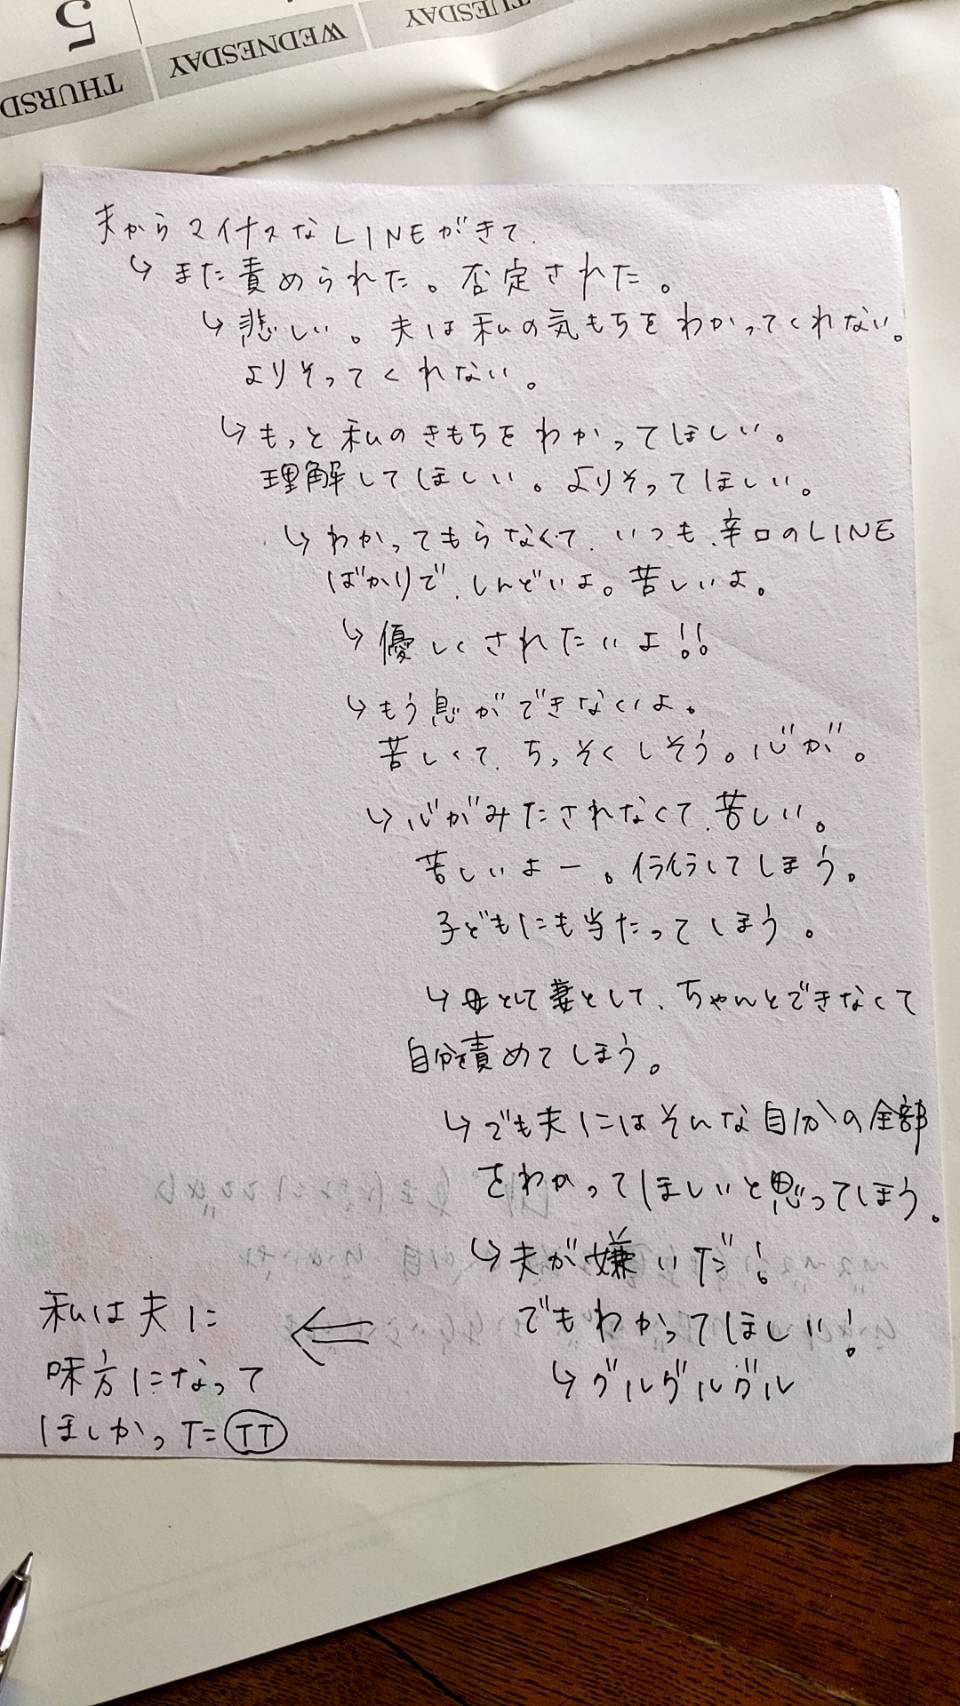 5
THURSD
WEDNESDAY
TUESDAY
夫からマイナスなLINEがきて、
↳また責められた。否定された。
↳悲しい。夫は私の気もちをわかってくれない。
よりそってくれない。
↳もっと私のきもちをわかってほしい。
理解してほしい。よりそってほしい。
↳わかってもらなくて、いつも、辛口のLINE
ばかりで、しんどいよ。苦しいよ。
↳優しくされたいよ!!
↳もう息ができなくいよ。
苦しくて、ちっそくしそう。心が。
↳心がみたされなくて、苦しい。
苦しいよー。イライラしてしまう。
子どもにも当たってしまう。
↳母として妻として、ちゃんとできなくて
自分を責めてしまう。
↳でも夫にはそんな自分の全部
をわかってほしいと思ってしまう。
↳夫が嫌いだ!
でもわかってほしい!
↳グルグルグル
←
私は夫に
味方になって
ほしかったTT